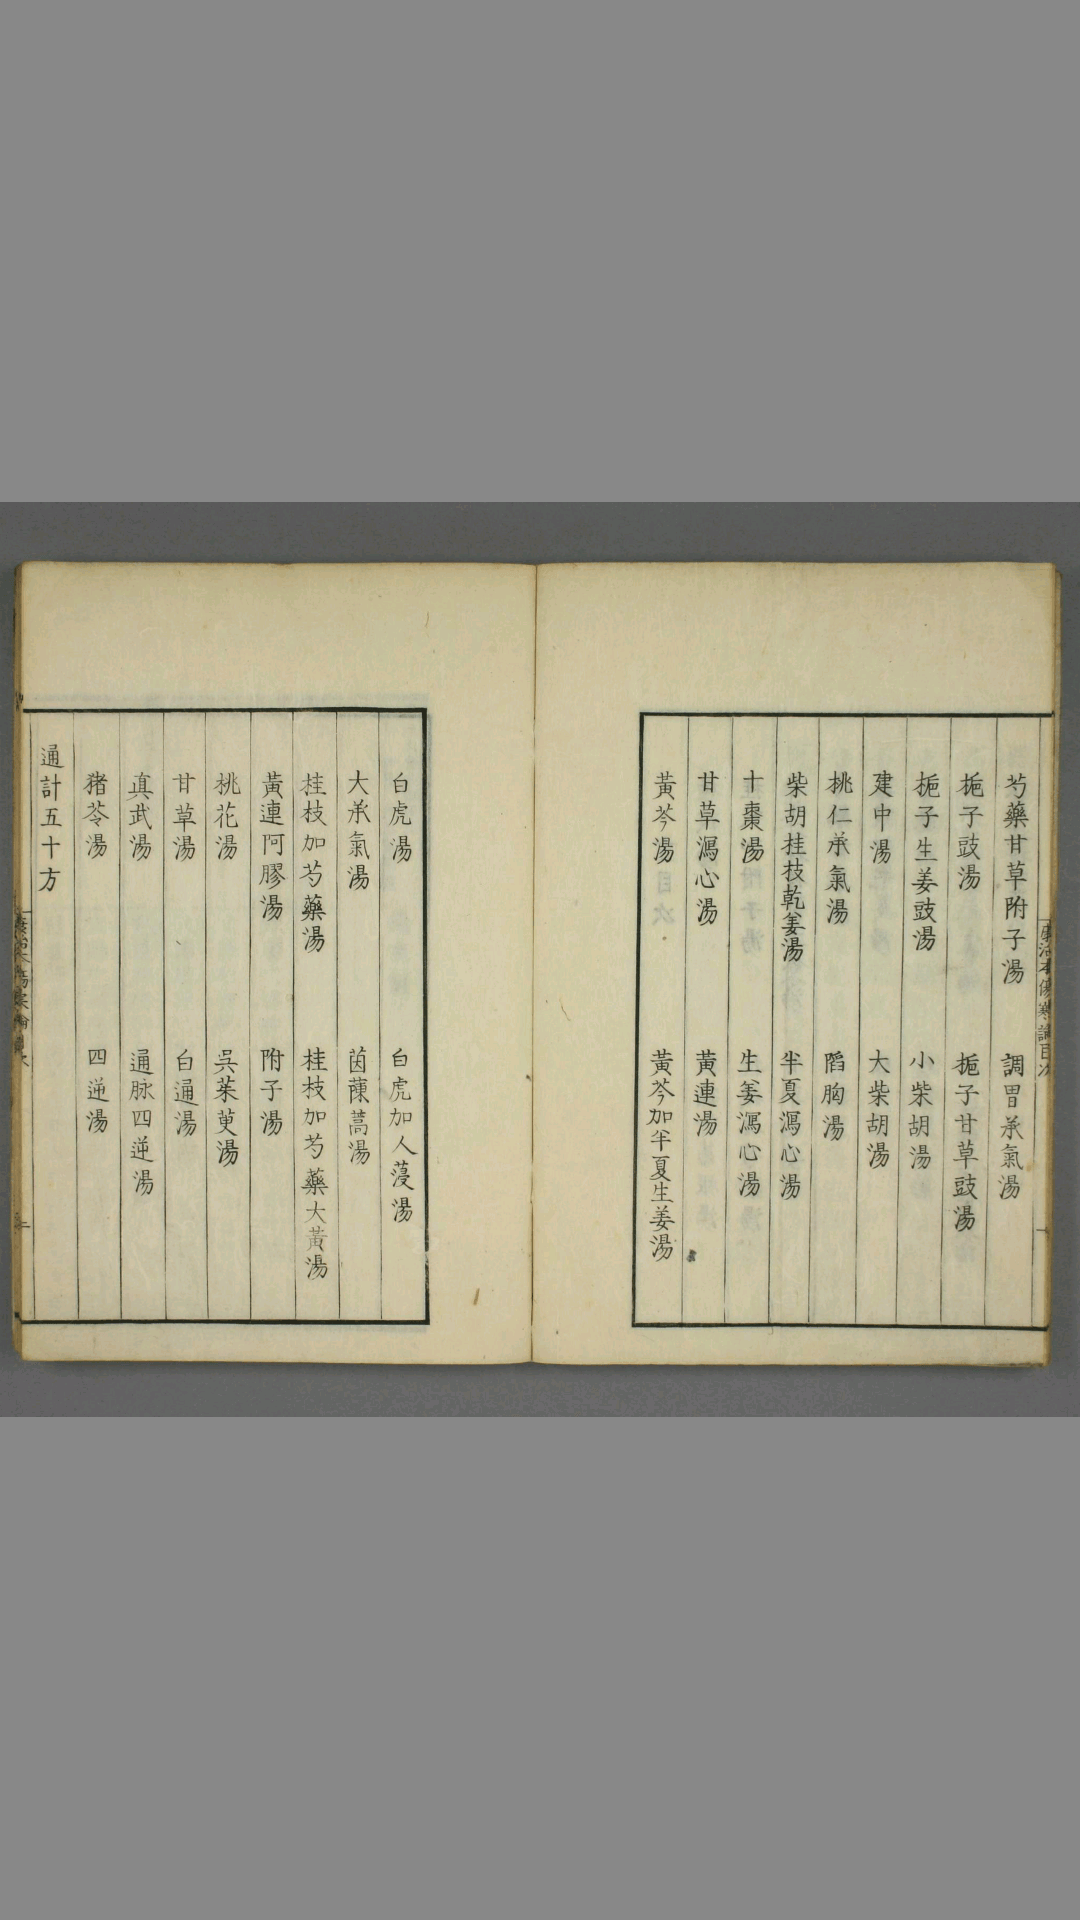 芍藥甘草附子湯　調胃承氣湯
梔子豉湯　梔子甘草豉湯
梔子生姜豉湯　小柴胡湯
建中湯　大柴胡湯
桃仁承氣湯　陷胸湯
柴胡桂枝乾姜湯　半夏瀉心湯
十棗湯　生姜瀉心湯
甘草瀉心湯　黃連湯
黃芩湯　黃芩加半夏生姜湯
白虎湯　白虎加人薓湯
大承氣湯　茵蔯蒿湯
桂枝加芍藥湯　桂枝加芍藥大黃湯
黃連阿膠湯　附子湯
桃花湯　吳茱萸湯
甘草湯　白通湯
真武湯　通脉四逆湯
猪苓湯　四逆湯
通計五十方